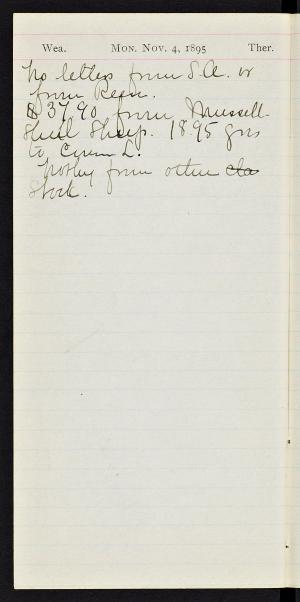 Wea. Mon. Nov. 4, 1895 Ther.
No letters from S.A. or
from Reen.
$3790 from Mussell-
Shell Sheep. 1895 goes
to L.
Nothing from other cla
stock.